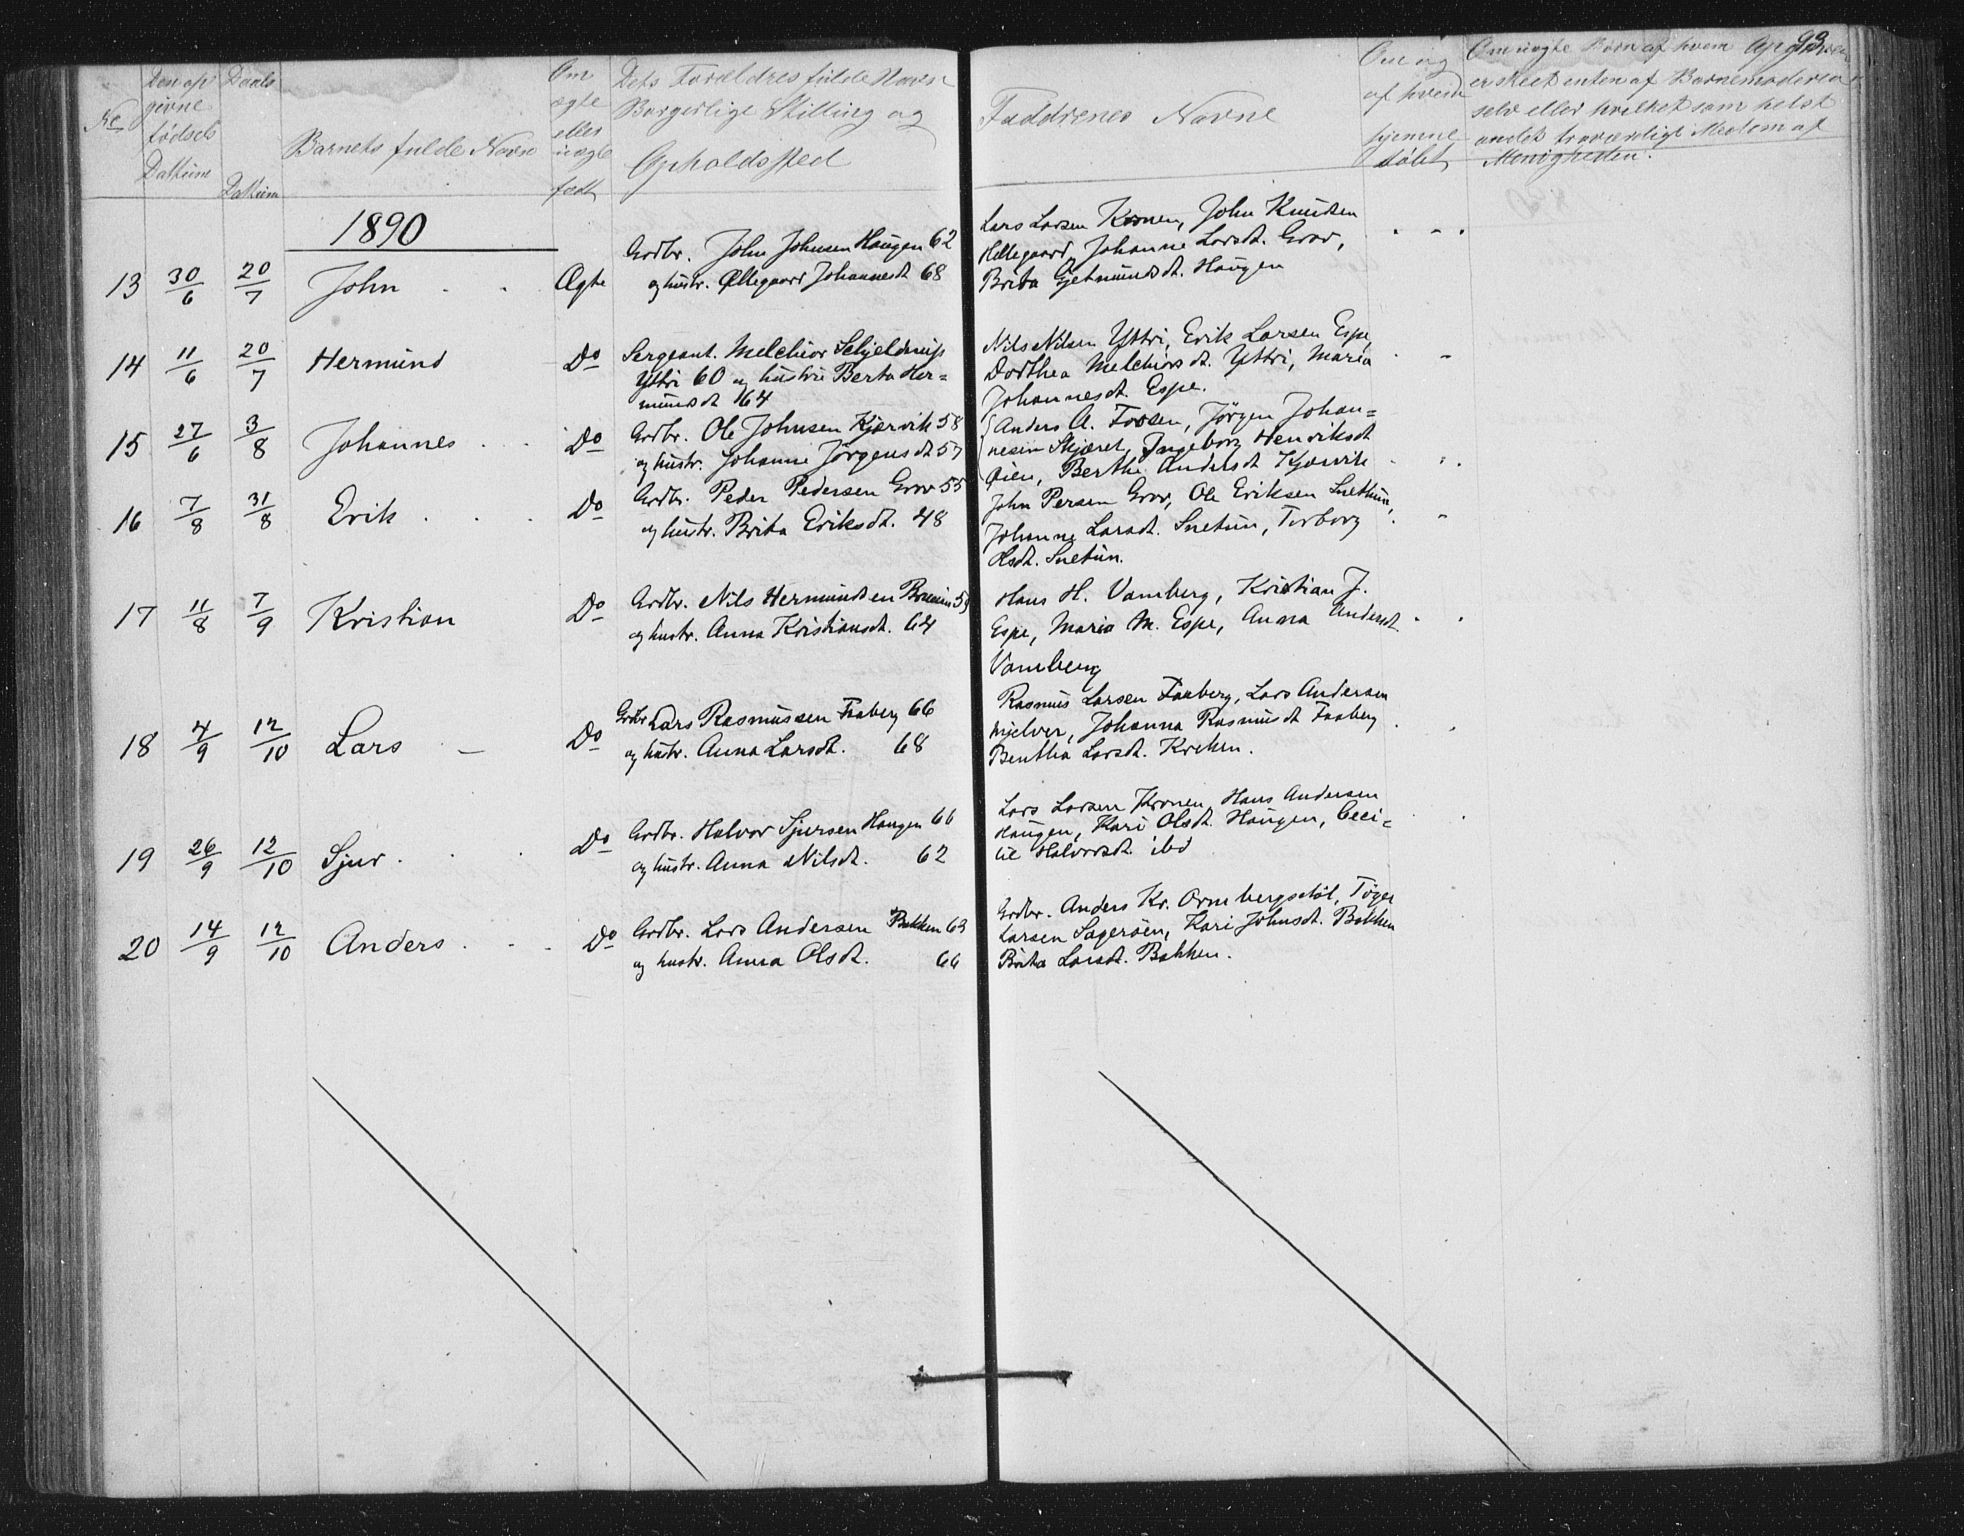 93
No
Den op
givne
Födsels
Dattum
Daabs
Dattum
Barnets fulde Navn
Om
ægte
eller
uægte
født
Dets Forældres fulde Navn
Borgerlige Stilling og
Opholdssted
Faddrenes Navne
Om og
af hvem
hjemme
døbt
Om uægte Børn af hvem Opgivelsen
er skeet enten af Barnemoderen
selv eller hvilket som helst
andet troværdigt Medlem af
Menigheden.
1890
13 30/6 20/7 John Ægte
Grdbr. John Johnsen Haugen 62
og hustr. Øllegaard Johannesdt 68
Lars Larsen Kronen, John Knudsen
Hellegaard, Johanne Larsdt. Grov,
Brita Gjetmundsdt. Haugen
14 11/6 20/7 Hermund Do
Sergeant. Melchior Schjelderup
Yttri 60 og hustru Berta Her=
mundsdt 64
Nils Nilsen Yttri, Erik Larsen Espe,
Dorthea Melchiorsdt. Yttri, Maria
Johannesdt. Espe.
15 27/6 3/8 Johannes Do
Grdbr. Ole Johnsen Kjærvik 58
og hustr. Johanne Jørgensdt 57
Anders A. Fossen, Jörgen Johan=
nesen Skjæret, Ingeborg Henriksdt
Øien, Berthe Andersdt Kjærvik
16 7/8 31/8 Erik Do
Grdbr. Peder Pedersen Grov 55
og hustr. Brita Eriksdt. 48
John Persen Grov, Ole Eriksen Snethun,
Johanne Larsdt. Snetun, Torborg
Olsdt. Snetun.
17 11/8 7/9 Kristian Do
Grdbr. Nils Hermundsen 59
og hustr. Anna Kristiansdt. 64
Hans H. Vamberg, Kristian J.
Espe, Maria M. Espe, Anna Andersdt.
Vamberg
18 4/9 12/10 Lars Do
Grdbr Lars Rasmussen Faaberg 66
og hustr. Anna Larsdt. 68
Rasmus Larsen Faaberg, Lars Andersen
Mjelver, Johanna Rasmusdt Faaberg
Benthia Larsdt. Kreken.
19 26/9 12/10 Sjur Do
Grdbr. Halvor Sjursen Haugen 66
og hustr. Anna Nilsdt. 62
Lars Larsen Kronen, Hans Andersen
Haugen, Kari Olsdt. Haugen, Ceci=
lie Halvorsdt. ibd
20 14/9 12/10 Anders Do
Grdbr. Lars Andersen Bakken 63
og hustr. Anna Olsdt. 66
Grdbr. Anders Kr. Ormbergstöl, Töger
Larsen Sagerøien, Kari Johnsdt. Bakken
Brita Larsdt. Bakken.